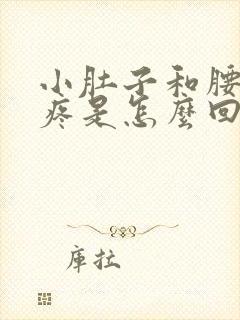 小肚子和腰
疼是怎麼回
庫拉